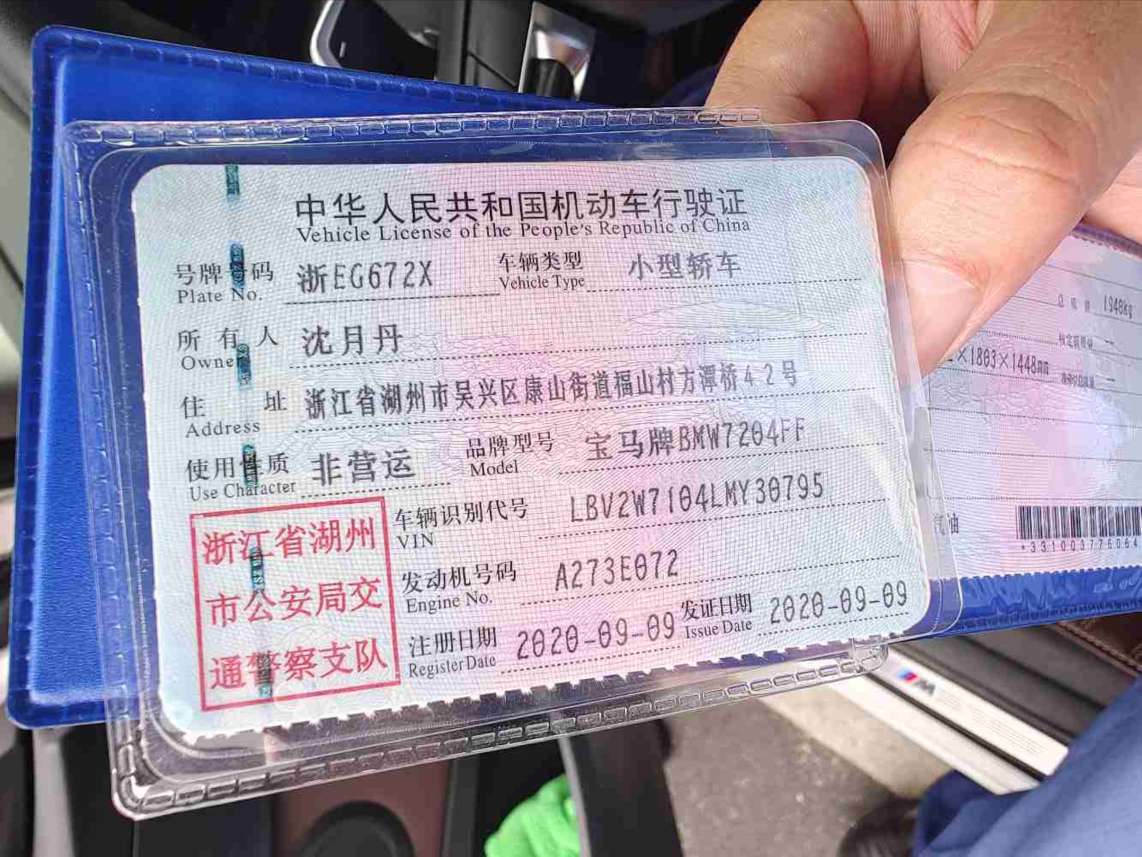 中华人民共和国机动车行驶证
Vehicle License of the People's Republic of China
号牌号码 浙EG672X 车辆类型 小型轿车
Plate No. Vehicle Type
所有人 沈月丹
Owner
住址 浙江省湖州市吴兴区康山街道福山村方潭桥42号
Address
使用性质 非营运 品牌型号 宝马牌BMW7204FF
Use Character Model
浙江省湖州
市公安局交
通警察支队
车辆识别代号 LBV2W7104LMY30795
VIN
发动机号码 A273E072
Engine No.
注册日期 2020-09-09 发证日期 2020-09-09
Register Date Issue Date
1948kg
×1803×1448mm
油
*331003776064
M